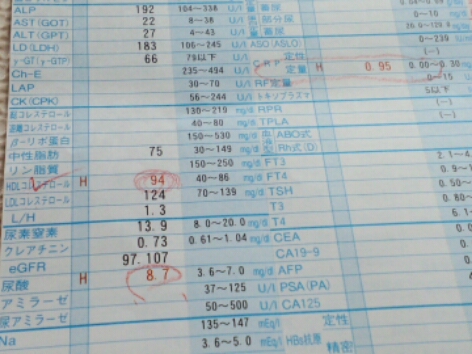 ALP 192 104~338 U/l
AST(GOT) 22 8~38 U/l
ALT(GPT) 27 4~43 U/l
LD(LDH) 183 106~245 U/l ASO(ASLO) 0~239
γ-GT(γ-GTP) 66 79以下 U/l CRP 定性 (-)
Ch-E 235~494 U/l 定量 H 0.95 0.00~0.30
LAP 30~70 U/l RF定量 0~15
CK(CPK) 56~244 U/l トキソプラズマ
総コレステロール 130~219 mg/d RPR (-)
40~80 mg/d TPLA (-)
β-リポ蛋白 150~530 mg/d ABO式
中性脂肪 75 30~149 mg/d Rh式(D)
リン脂質 150~250 mg/d FT3
HDLコレステロール H 94 40~86 mg/d FT4
LDLコレステロール 124 70~139 mg/d TSH
L/H 1.3 T3
尿素窒素 13.9 8.0~20.0 mg/d T4
クレアチニン 0.73 0.61~1.04 mg/d CEA
eGFR 97.107 CA19-9
尿酸 H 8.7 3.6~7.0 mg/d AFP
アミラーゼ 37~125 U/l PSA(PA)
尿アミラーゼ 50~500 U/l CA125
Na 135~147 mEq/l
3.6~5.0 mEq/l HBs抗原 定性
精密